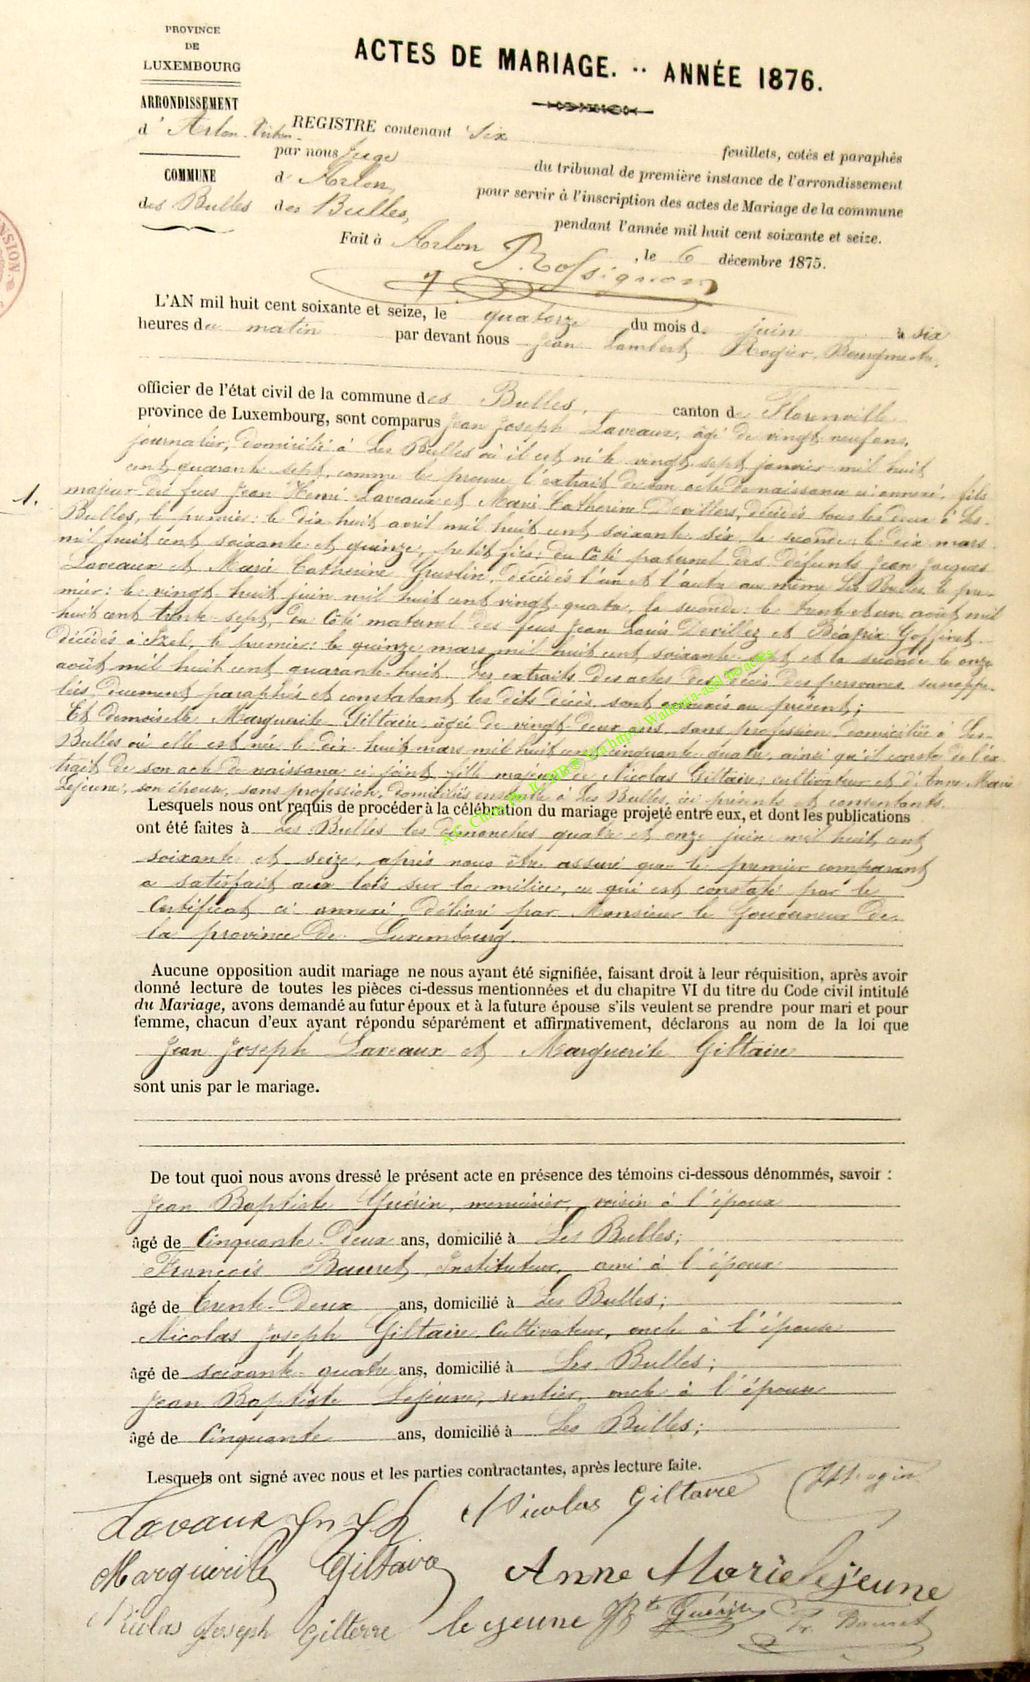 PROVINCE
DE
LUXEMBOURG
ARRONDISSEMENT
d'Arlon-Virton
COMMUNE
des Bulles
ACTES DE MARIAGE. -- ANNÉE 1876.
REGISTRE contenant six feuillets, cotés et paraphés
par nous Juge du tribunal de première instance de l'arrondissement
d'Arlon, pour servir à l'inscription des actes de Mariage de la commune
des Bulles, pendant l'année mil huit cent soixante et seize.
Fait à Arlon, le 6 décembre 1875.
Rossignon
L'AN mil huit cent soixante et seize, le quatorze du mois de juin à six
heures du matin par devant nous Jean Lambert Rogier, Bourgmestre,
officier de l'état civil de la commune des Bulles, canton de Florenville
province de Luxembourg, sont comparus Jean Joseph Laveaux, âgé de vingt neuf ans,
journalier, domicilié à Les Bulles où il est né le vingt sept janvier mil huit
cent quarante sept, comme le prouve l'extrait de son acte de naissance ci annexé, fils
1.
majeur des feus Jean Henri Laveaux et Marie Catherine Devillers, décédés tous les deux à Les-
Bulles, le premier: le dix huit avril mil huit cent soixante six, la seconde: le dix mars
mil huit cent soixante et quinze, petit fils: du côté paternel des défunts Jean Jacques
Laveaux et Marie Catherine Guslin, décédés l'un et l'autre au même Les Bulles, le pre-
mier: le vingt huit juin mil huit cent vingt quatre, la seconde: le trente et un août mil
huit cent trente sept, du côté maternel des feus Jean Louis Devillez et Béatrix Goffinet,
décédés à Izel, le premier: le quinze mars mil huit cent soixante sept et la seconde le onze
août mil huit cent quarante huit. Les extraits des actes des décès des personnes susrappe-
lées dûment paraphés et constatant les dits décès sont annexés au présent;
Et demoiselle Marguerite Giltaire, âgée de vingt deux ans, sans profession domiciliée à Les-
Bulles où elle est née le dix huit mars mil huit cent cinquante quatre, ainsi qu'il conste de l'ex-
trait de son acte de naissance ci joint, fille majeure de Nicolas Giltaire, cultivateur et d'Anne Marie
Lejeune, son épouse, sans profession, domiciliés ensemble à Les Bulles, ici présents et consentants.
Lesquels nous ont requis de procéder à la célébration du mariage projeté entre eux, et dont les publications
ont été faites à Les Bulles les dimanches quatre et onze juin mil huit cent
soixante et seize, après nous être assuré que le premier comparant
a satisfait aux lois sur la milice, ce qui est constaté par le
Certificat ci annexé, délivré par Monsieur le Gouverneur de
la province de Luxembourg.
Aucune opposition audit mariage ne nous ayant été signifiée, faisant droit à leur réquisition, après avoir
donné lecture de toutes les pièces ci-dessus mentionnées et du chapitre VI du titre du Code civil intitulé
du Mariage, avons demandé au futur époux et à la future épouse s'ils veulent se prendre pour mari et pour
femme, chacun d'eux ayant répondu séparément et affirmativement, déclarons au nom de la loi que
Jean Joseph Laveaux et Marguerite Giltaire
sont unis par le mariage.
De tout quoi nous avons dressé le présent acte en présence des témoins ci-dessous dénommés, savoir :
Jean Baptiste Guérin, menuisier, voisin à l'époux
âgé de Cinquante-Deux ans, domicilié à Les Bulles;
François Bauret, Instituteur, ami à l'époux
âgé de Trente-Deux ans, domicilié à Les Bulles;
Nicolas Joseph Giltaire, Cultivateur, oncle à l'épouse
âgé de soixante-quatre ans, domicilié à Les Bulles;
Jean Baptiste Lejeune, rentier, oncle à l'épouse
âgé de Cinquante ans, domicilié à Les Bulles;
Lesquels ont signé avec nous et les parties contractantes, après lecture faite.
Lavaux Jn Jh Nicolas Giltaire
Marguerite Giltaire Anne Marie Lejeune
Nicolas Joseph Gilterre le jeune JBte Guérin Fr. Bauret